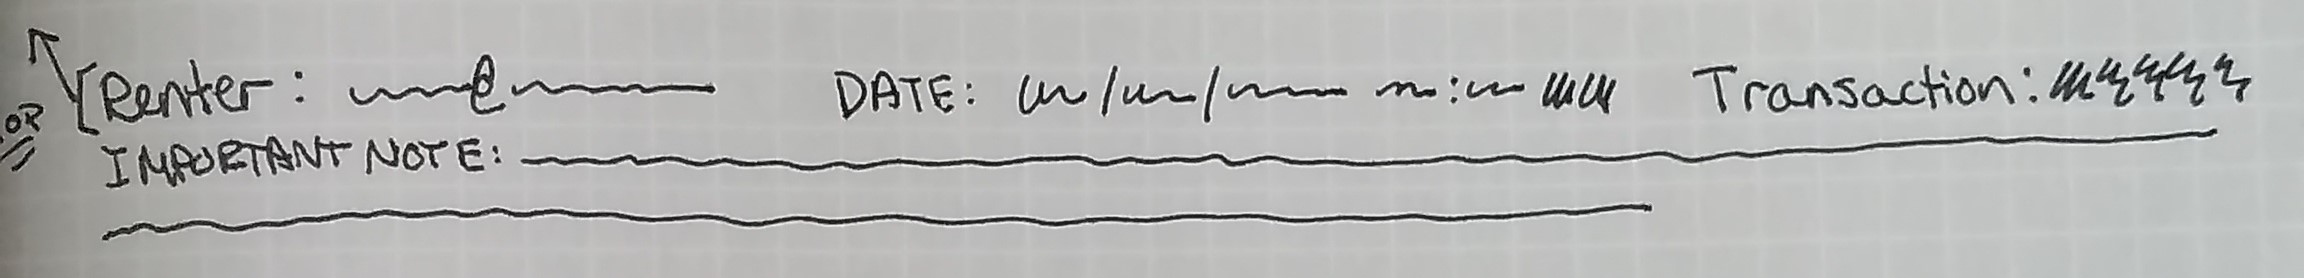 Renter: @ DATE: / / : Transaction:
OR
IMPORTANT NOTE: